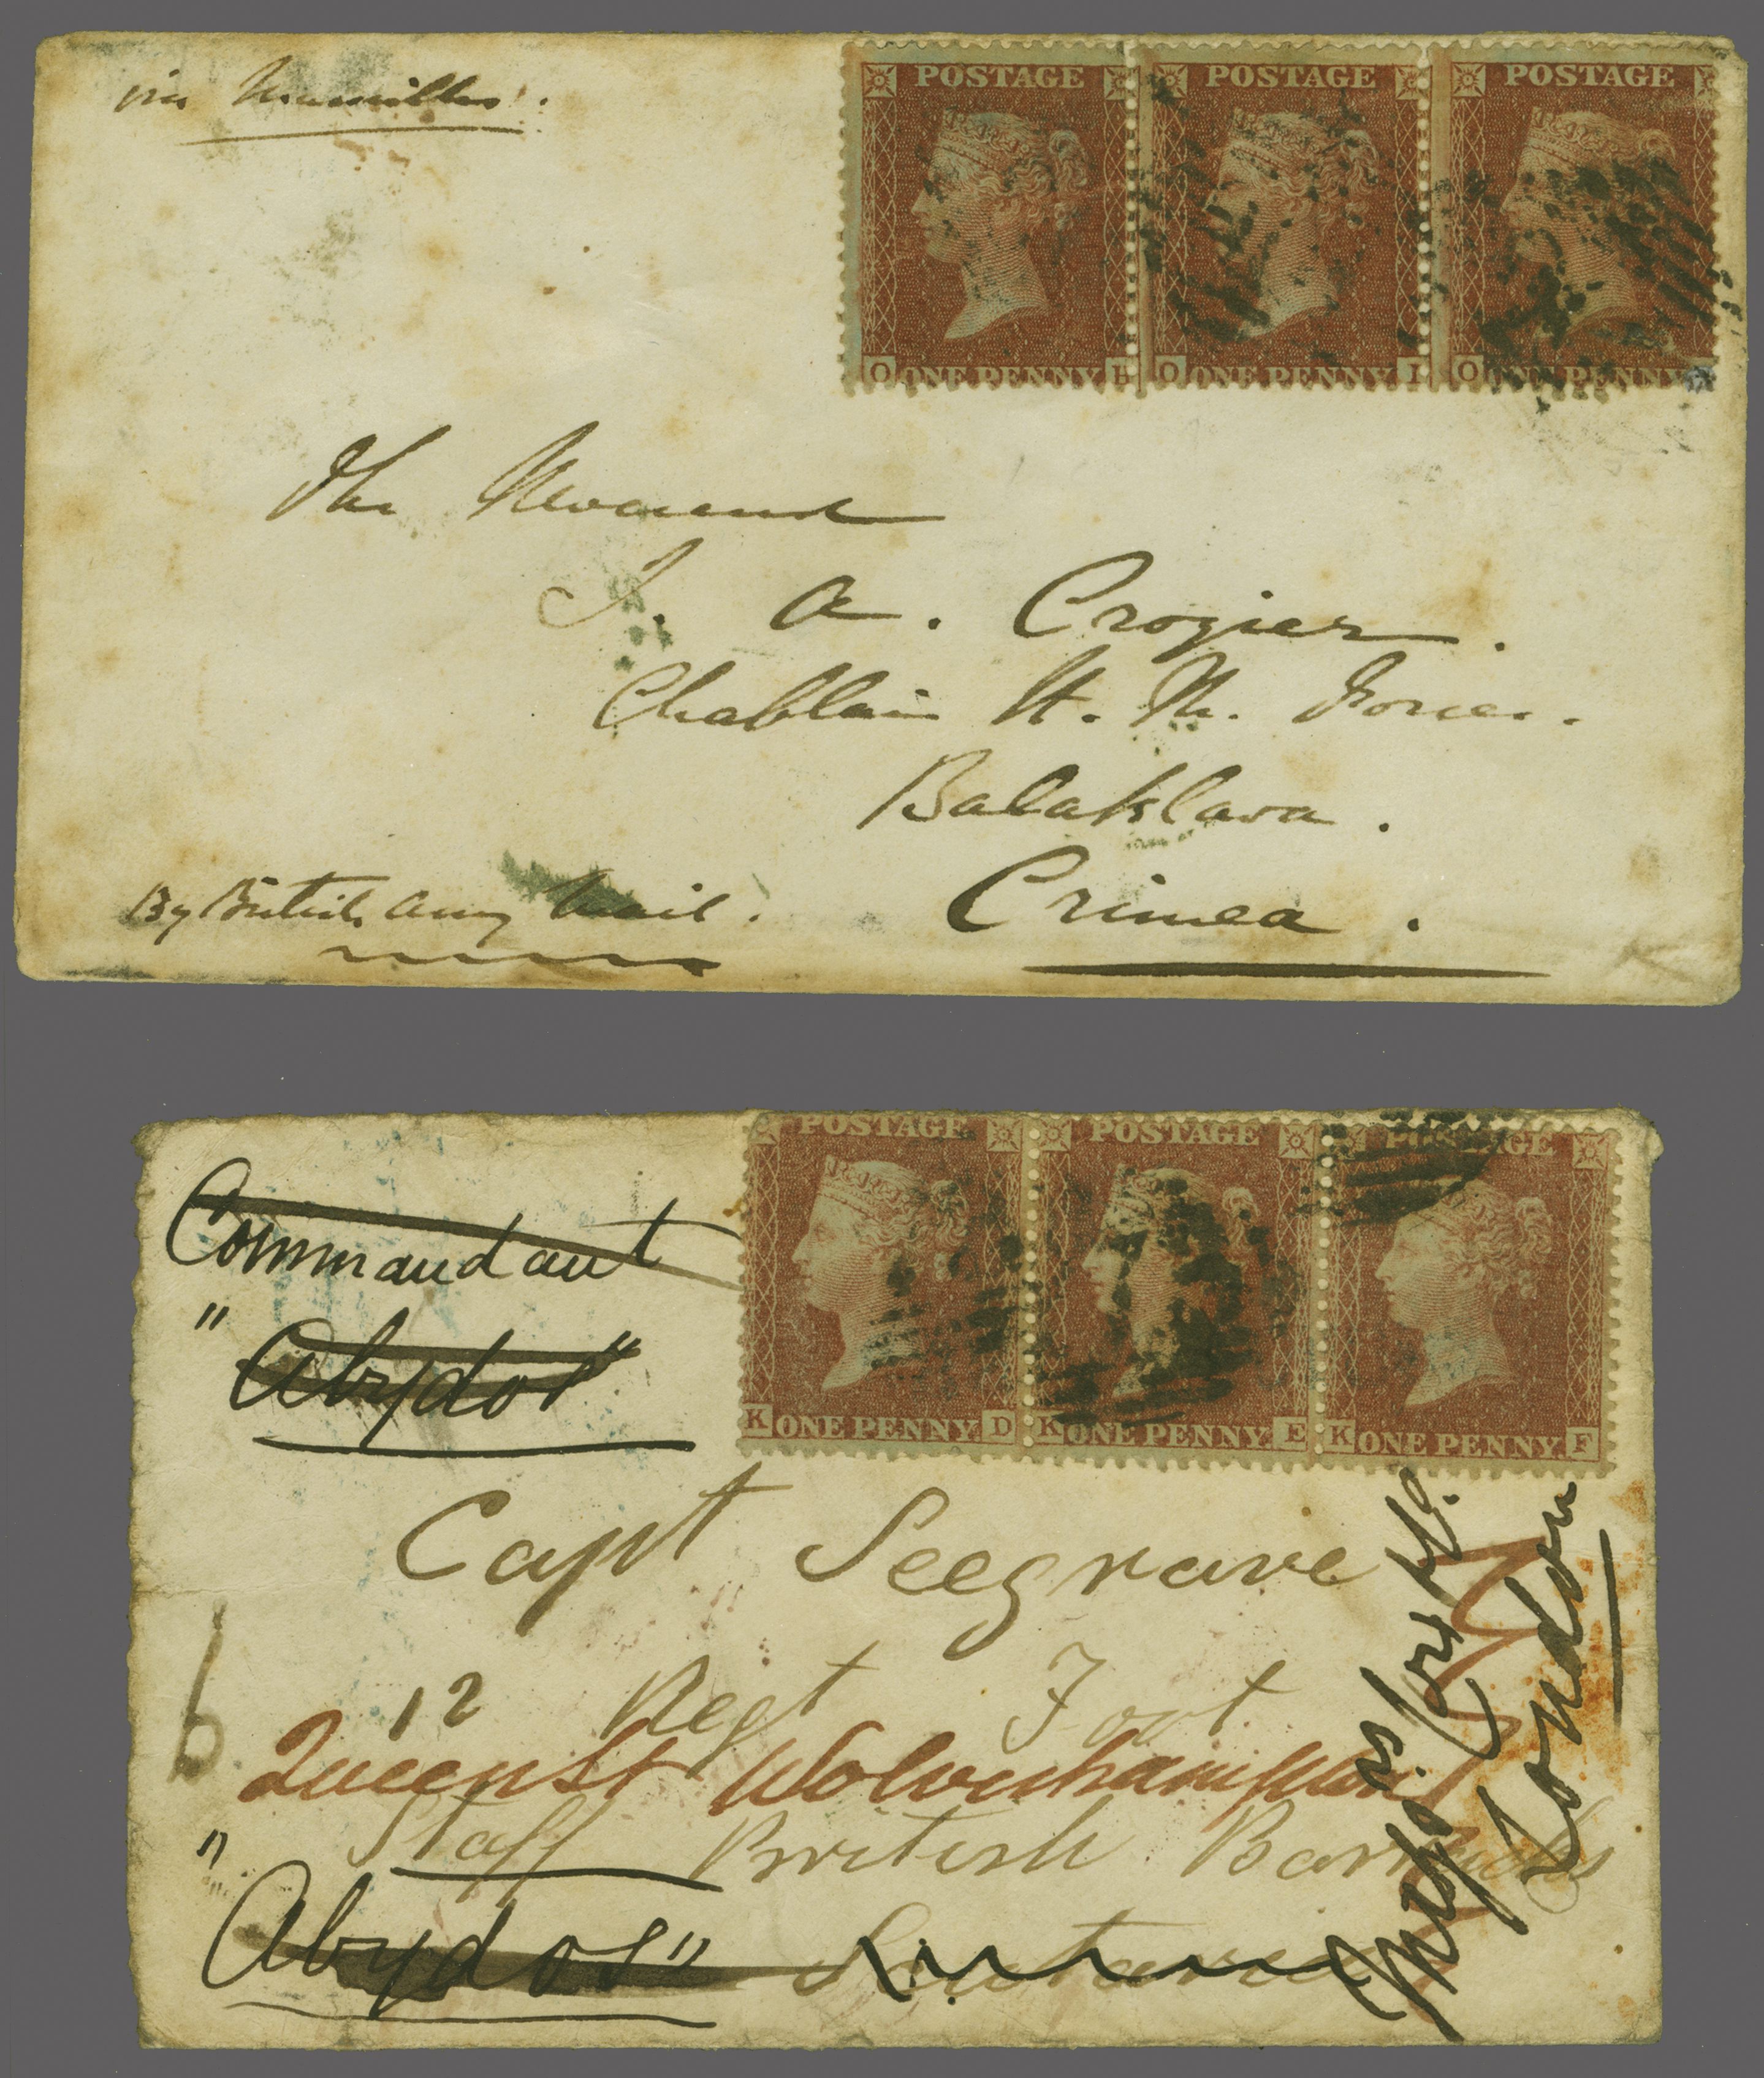 via Marseilles.
POSTAGE POSTAGE POSTAGE
O ONE PENNY H O ONE PENNY I O ONE PENNY
The Reverend
S. A. Crozier.
Chaplain H. M. Forces.
Balaklava.
Crimea.
By British Army Mail.
POSTAGE POSTAGE POSTAGE
K ONE PENNY D K ONE PENNY E K ONE PENNY F
Commandant
"Abydos"
Capt Seegrave
12 Regt Foot
Queen St Wolverhampton
Staff British Barracks
"Abydos" Scutari
6
London